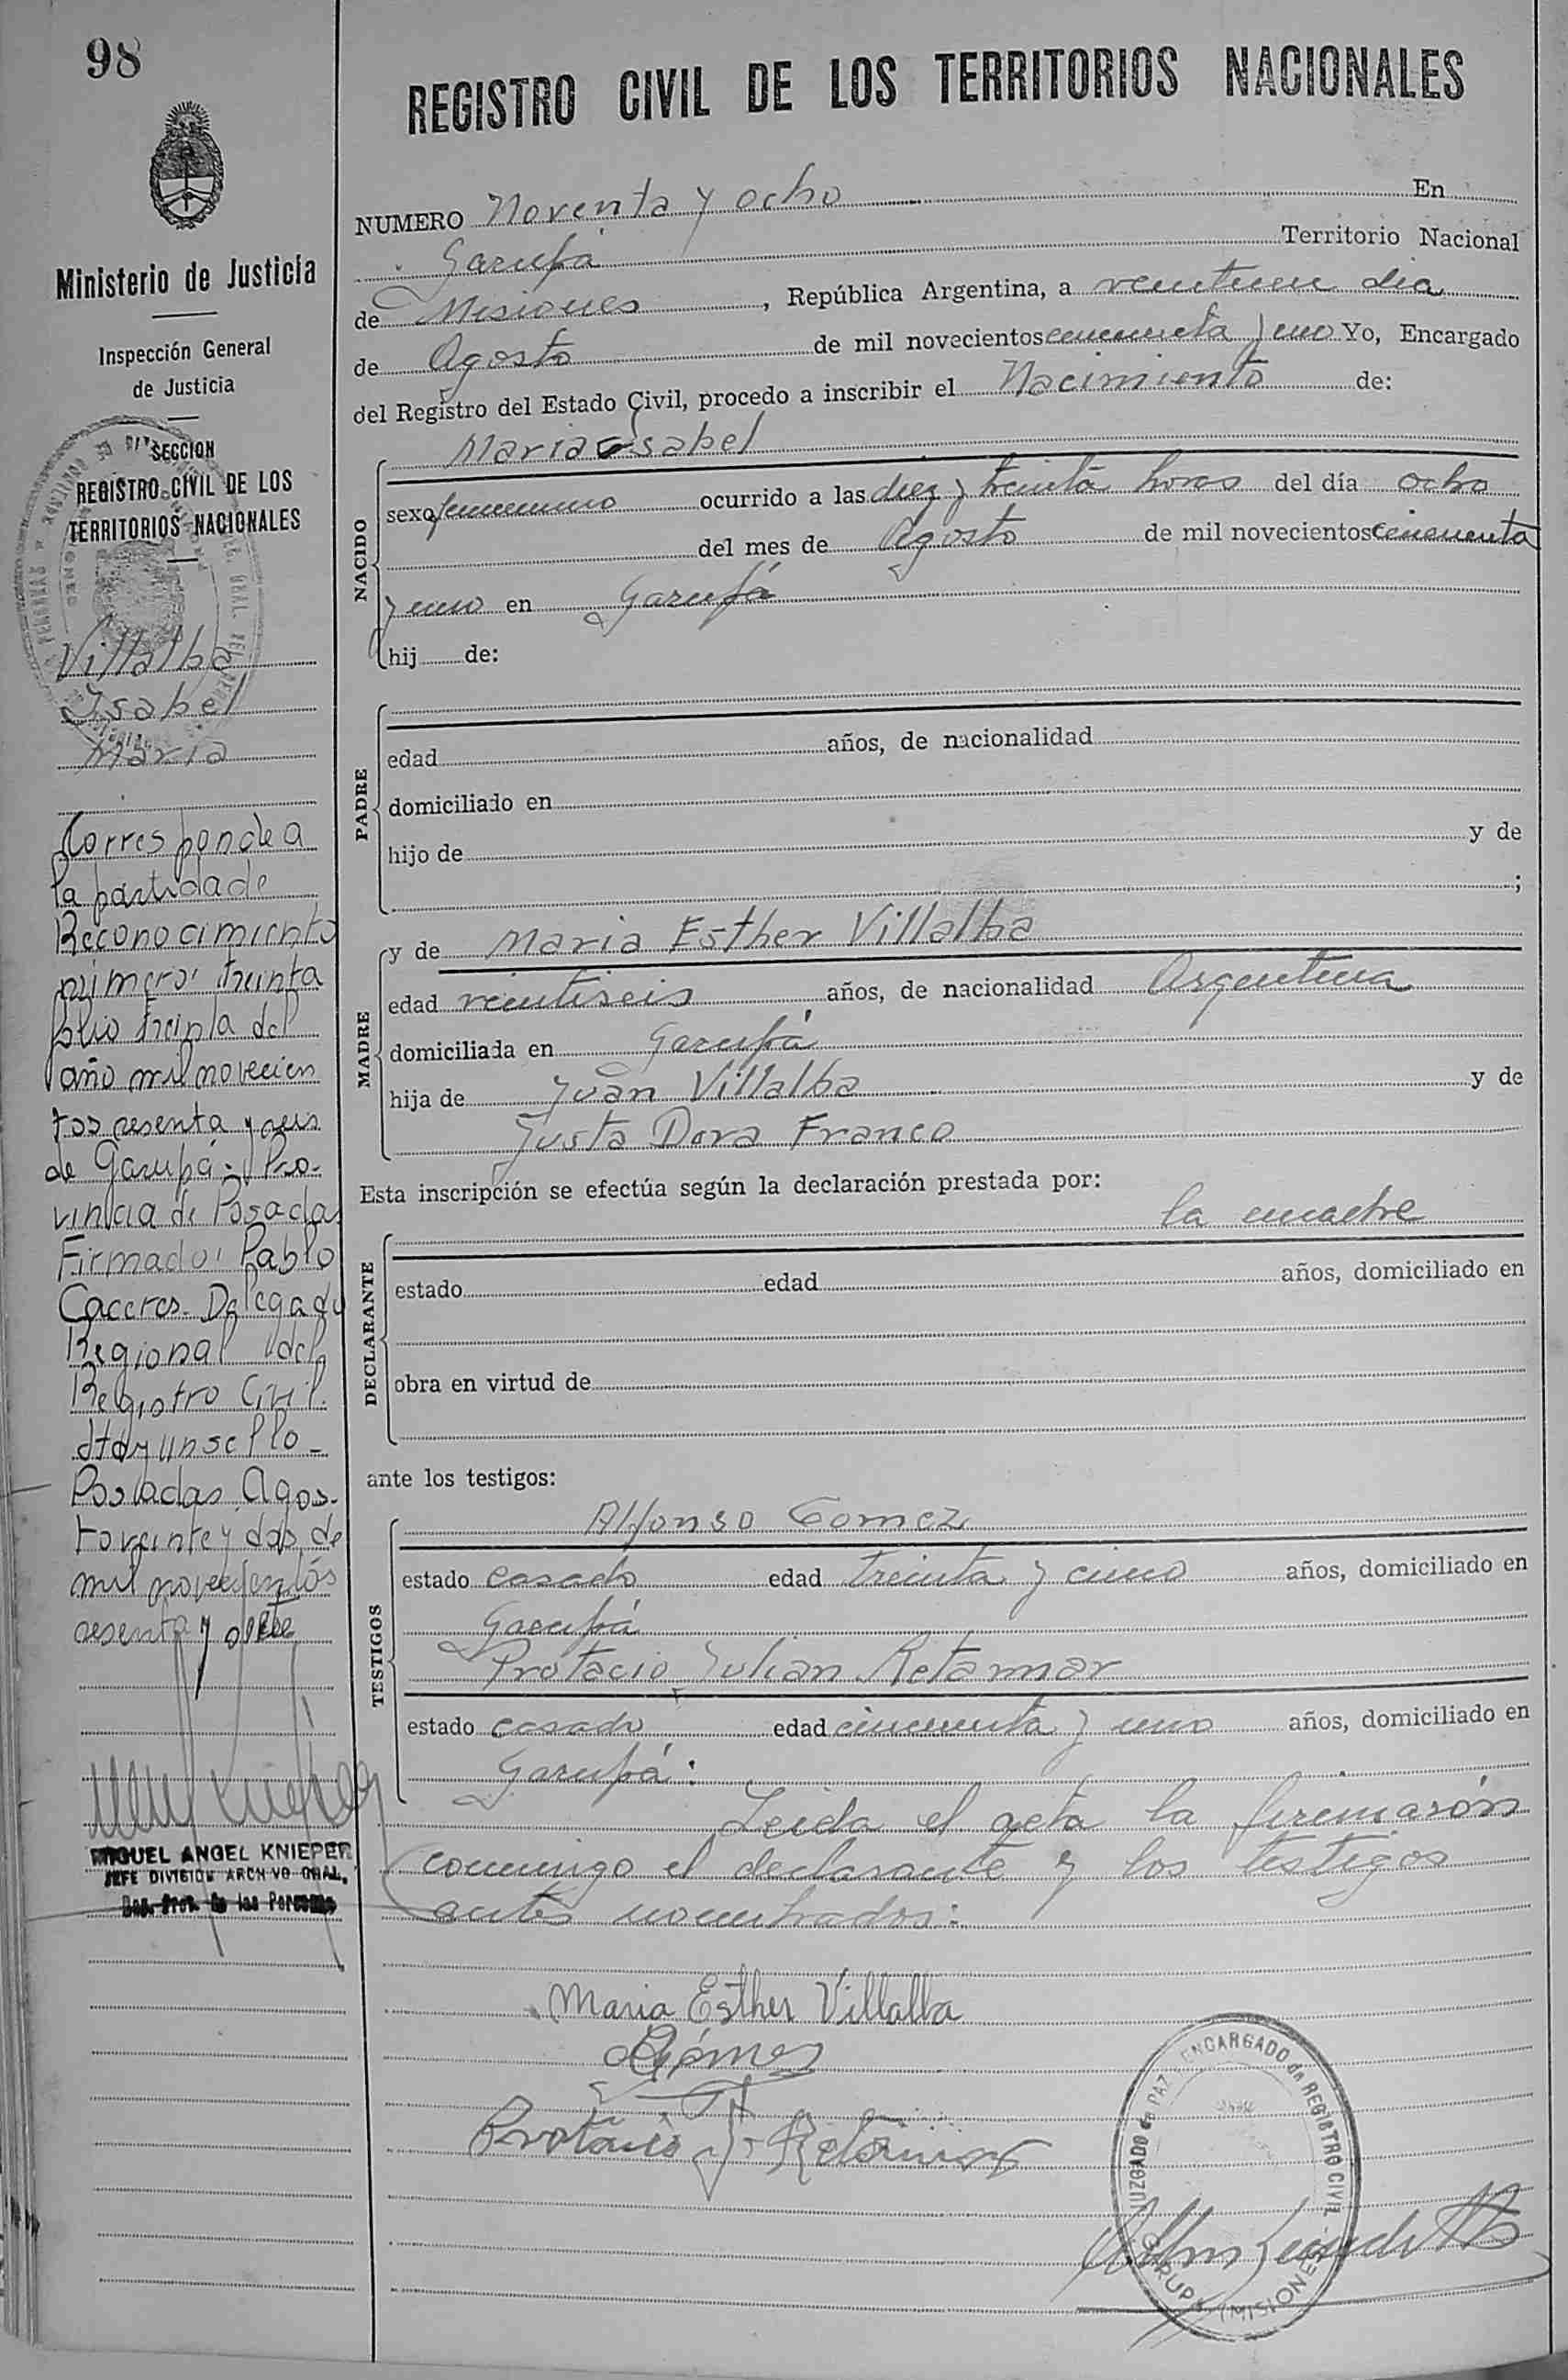 98
Ministerio de Justicia
Inspección General
de Justicia
SECCION
REGISTRO CIVIL DE LOS
TERRITORIOS NACIONALES
Villalba
Isabel
Maria
Corresponde a
la partida de
Reconocimiento
número: treinta
folio treinta del
año mil novecien
tos sesenta y seis
de Garupá - Pro-
vincia de Posadas
Firmado: Pablo
Caceres. Delegado
Regional del
Registro Civil.
Hay un sello -
Posadas, Agos-
to veinte y dos de
mil novecientos
sesenta y siete
MIGUEL ANGEL KNIEPER
JEFE DIVISION ARCHIVO GRAL.
Reg. Prov. de las Personas
REGISTRO CIVIL DE LOS TERRITORIOS NACIONALES
NUMERO Noventa y ocho En
Garupá Territorio Nacional
de Misiones, República Argentina, a veintiun dia
de Agosto de mil novecientos cincuenta y uno Yo, Encargado
del Registro del Estado Civil, procedo a inscribir el Nacimiento de:
Maria Isabel
NACIDO
sexo femenino ocurrido a las diez y treinta horas del día ocho
del mes de Agosto de mil novecientos cincuenta
y uno en Garupá
hij de:
PADRE
edad años, de nacionalidad
domiciliado en
hijo de y de
;
MADRE
y de Maria Esther Villalba
edad veintiseis años, de nacionalidad Argentina
domiciliada en Garupá
hija de Juan Villalba y de
Justa Dora Franco
Esta inscripción se efectúa según la declaración prestada por:
la madre
DECLARANTE
estado edad años, domiciliado en
obra en virtud de
ante los testigos:
TESTIGOS
Alfonso Gomez
estado casado edad treinta y cinco años, domiciliado en
Garupá
Protacio Julian Retamar
estado casado edad cincuenta y uno años, domiciliado en
Garupá:
Leida el acta la firmarón
conmigo el declarante y los testigos
antes nombrados:
Maria Esther Villalba
AGómez
Protacio J. Retamar
JUZGADO de PAZ ENCARGADO de REGISTRO CIVIL
GARUPA (MISIONES)